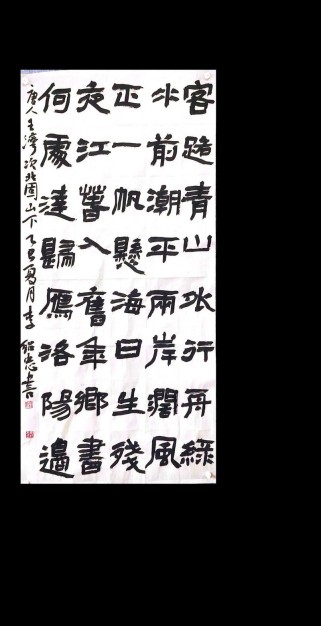 客路青山外行舟綠
水前潮平兩岸闊風
正一帆懸海日生殘
夜江春入舊年鄉書
何處達歸雁洛陽邊
唐人王灣次北固山下乙巳夏月李紹忠書